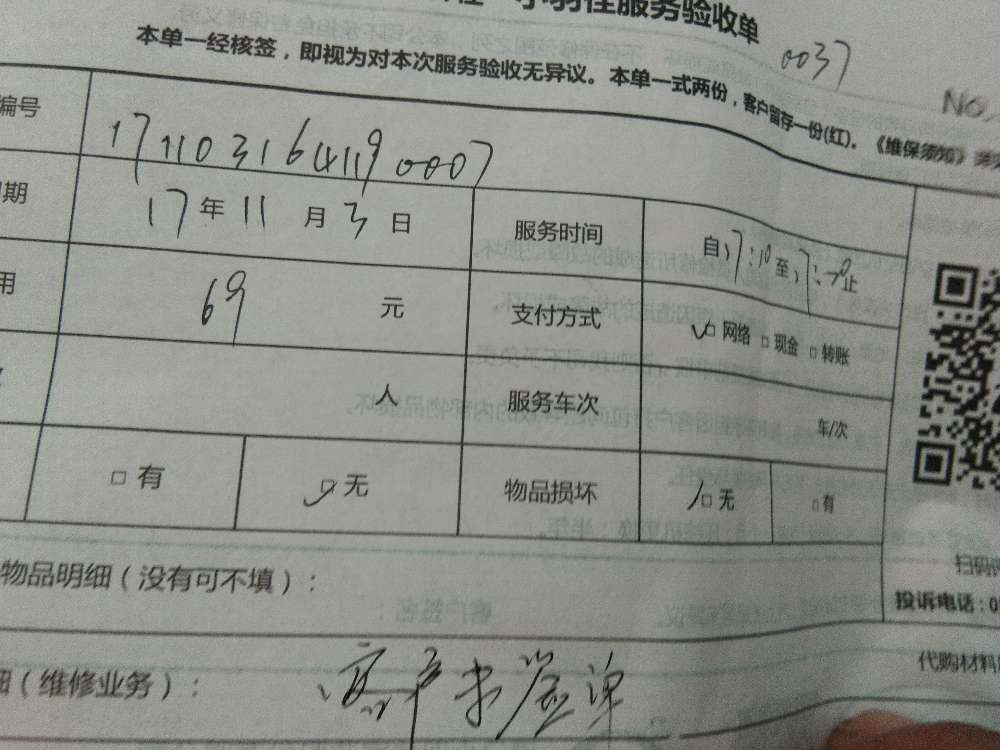 服务验收单
0037
本单一经核签，即视为对本次服务验收无异议。本单一式两份，客户留存一份(红)。《维保须知》
NO.
编号 1711031641190007
期 17年11月3日 服务时间 自17:10至17:20止
用 69 元 支付方式 网络 现金 转账
人 服务车次 车/次
有 无 物品损坏 无 有
物品明细（没有可不填）：
扫码
投诉电话：0
代购材料
细（维修业务）： 客户未签单